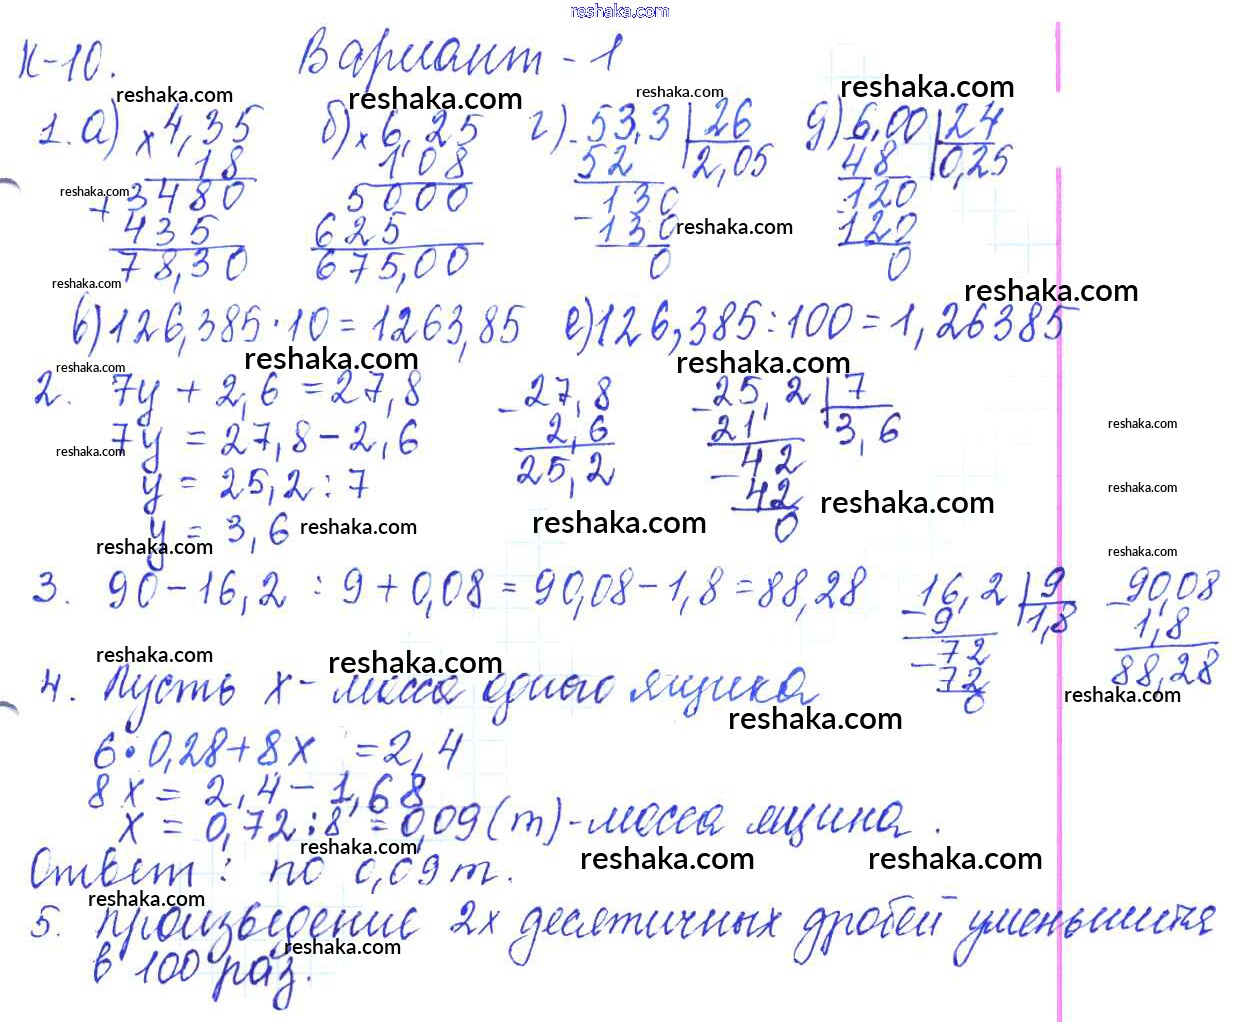 reshaka.com
К-10. Вариант - 1
reshaka.com reshaka.com reshaka.com reshaka.com
1. а) × 4,35 б) × 6,25 г) - 53,3 | 26 д) 6,00 | 24
18 108 52 2,05 48 0,25
reshaka.com + 3480 5000 130 120
435 625 - 130 reshaka.com 120
78,30 675,00 0 0
reshaka.com reshaka.com
в) 126,385 · 10 = 1263,85 е) 126,385 : 100 = 1,26385
reshaka.com reshaka.com reshaka.com
2. 7у + 2,6 = 27,8 - 27,8 - 25,2 | 7
7у = 27,8 - 2,6 2,6 21 3,6 reshaka.com
reshaka.com 25,2 - 42
у = 25,2 : 7 42 reshaka.com reshaka.com
у = 3,6 reshaka.com reshaka.com 0
reshaka.com reshaka.com
3. 90 - 16,2 : 9 + 0,08 = 90,08 - 1,8 = 88,28 - 16,2 | 9 - 90,08
9 1,8 1,8
- 72 88,28
72
0
reshaka.com reshaka.com reshaka.com
4. Пусть х - масса одного ящика
reshaka.com
6 · 0,28 + 8х = 2,4
8х = 2,4 - 1,68
х = 0,72 : 8 = 0,09 (т) - масса ящика.
reshaka.com reshaka.com reshaka.com
Ответ: по 0,09 т.
reshaka.com
5. произведение 2х десятичных дробей уменьшится
reshaka.com
в 100 раз.